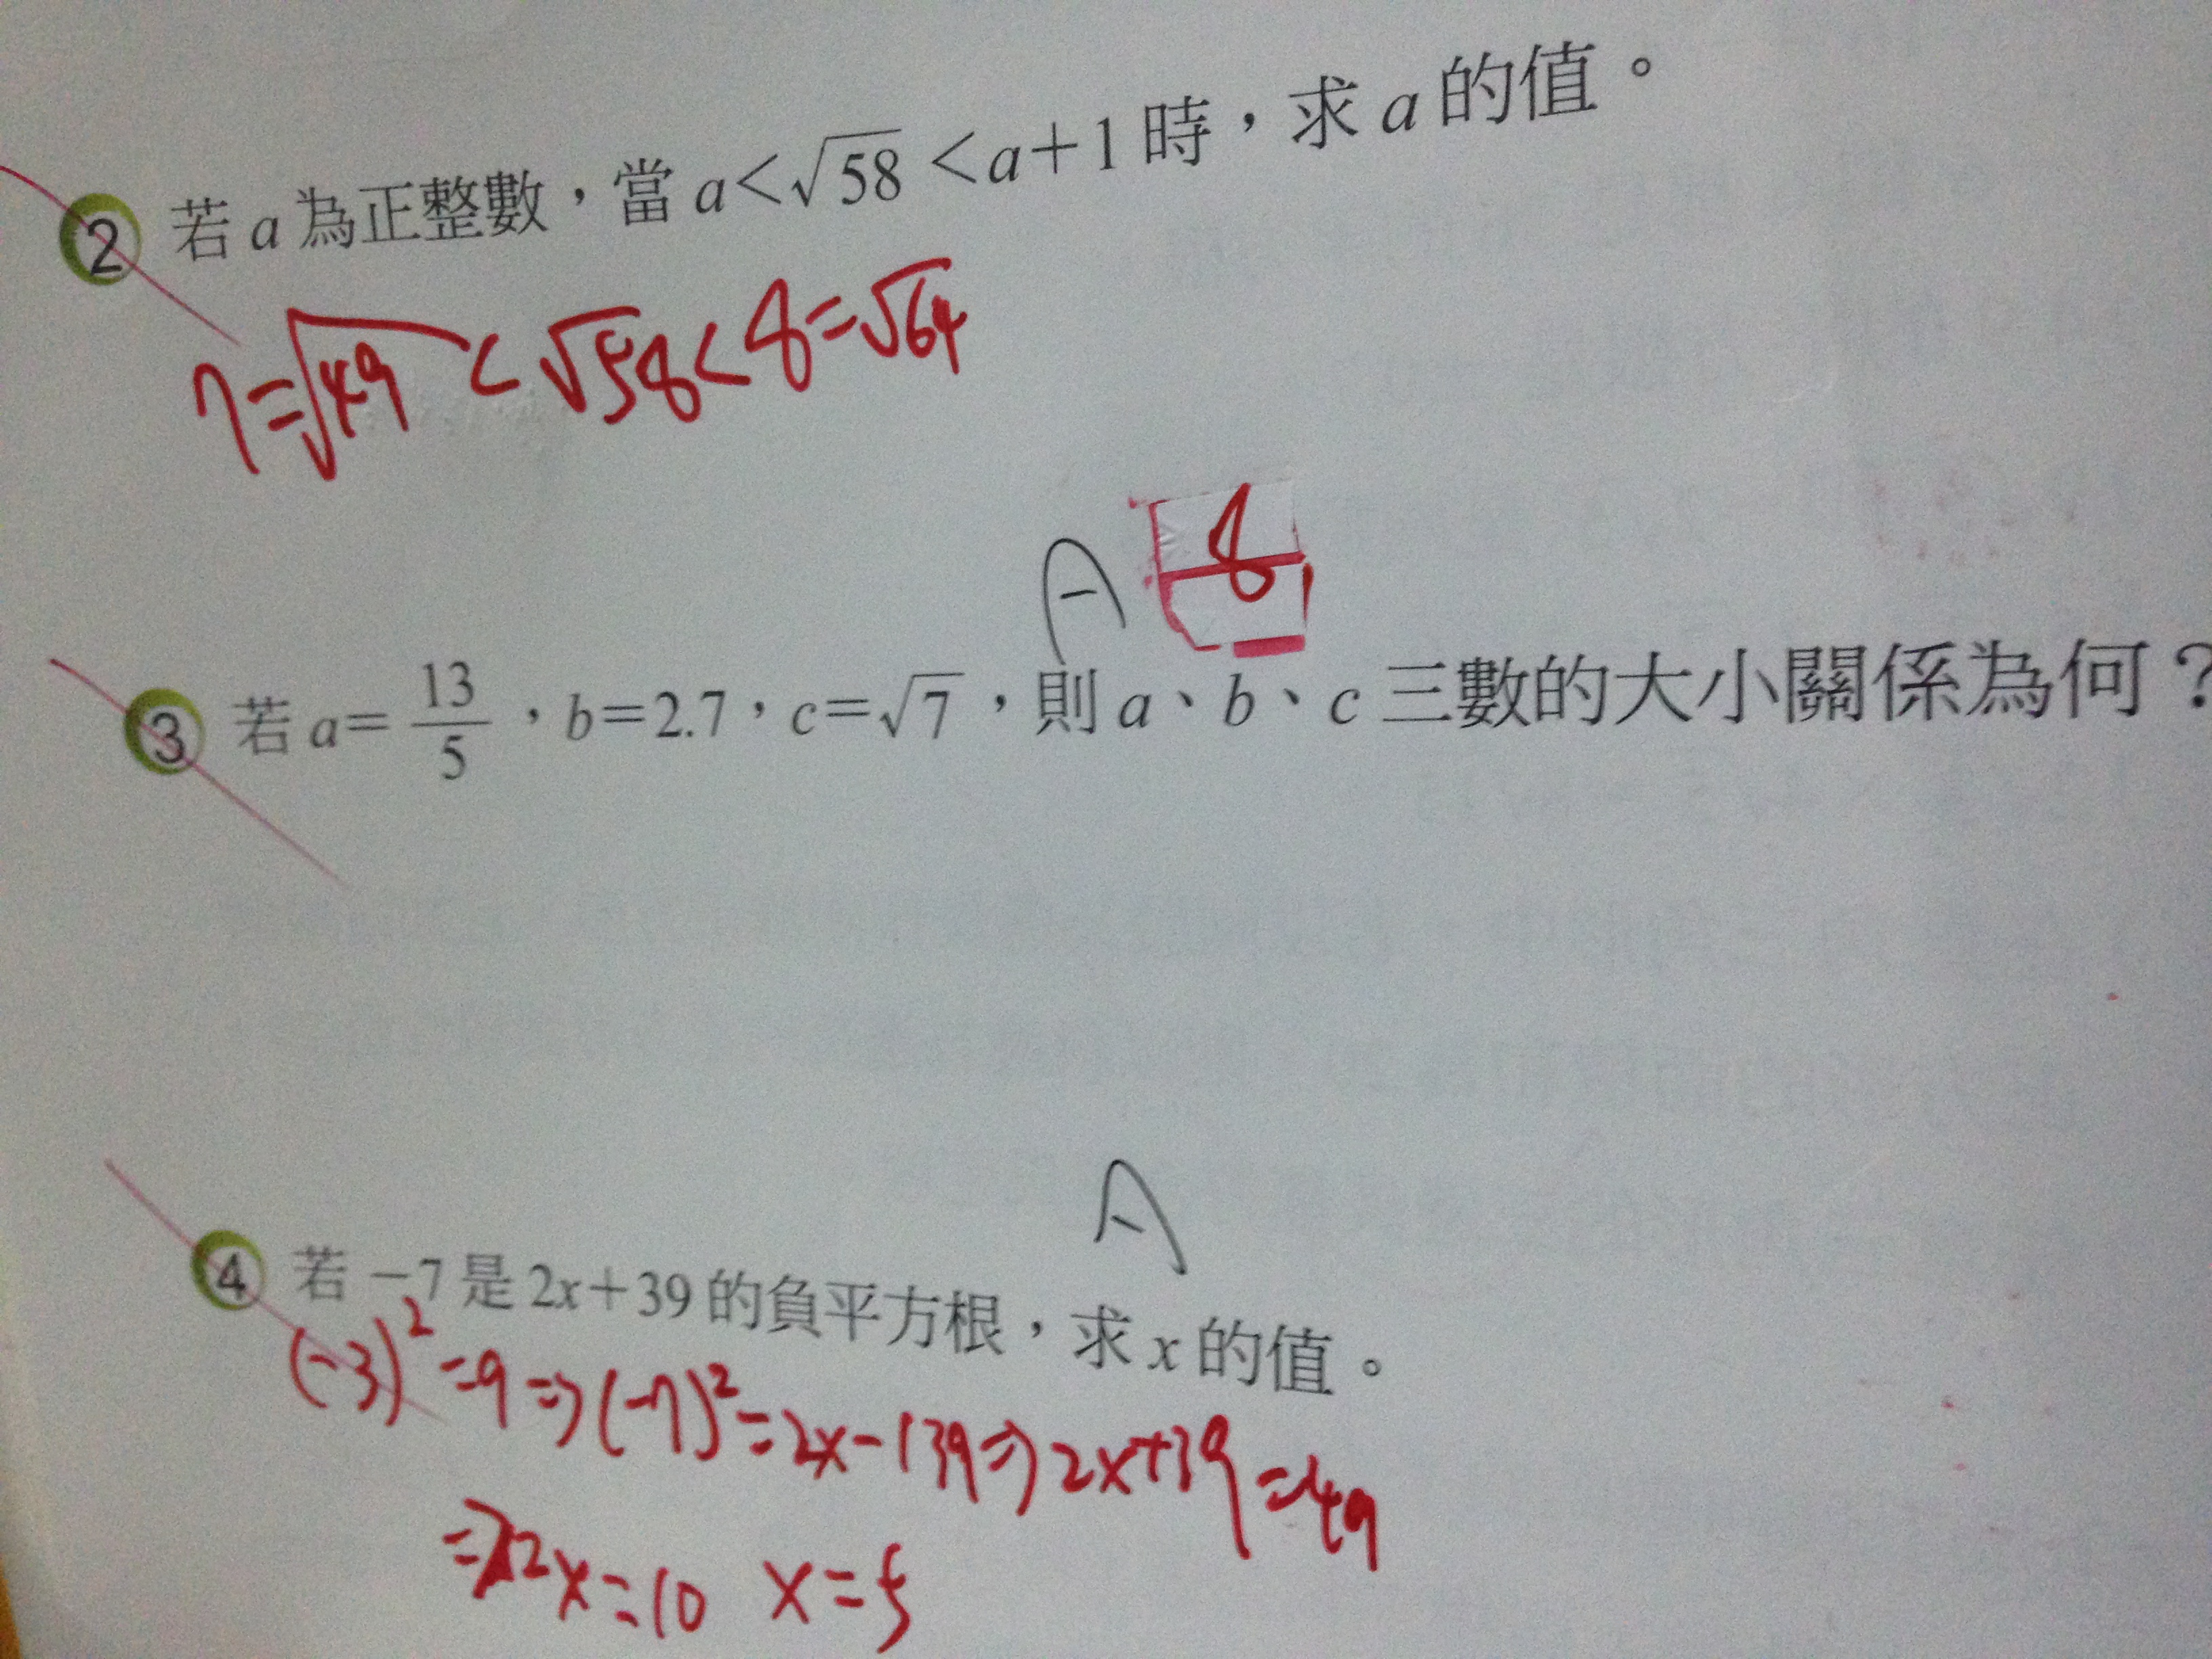 ② 若 a 為正整數，當 a<√58 <a+1 時，求 a 的值。
7=√49 < √58 < 8=√64
A 8
③ 若 a= 13/5 ，b=2.7，c=√7 ，則 a、b、c 三數的大小關係為何？
A
④ 若 −7 是 2x+39 的負平方根，求 x 的值。
(-3)² =9 ⇒ (-7)² = 2x-139 ⇒ 2x+39 =49
⇒ 2x=10 x=5